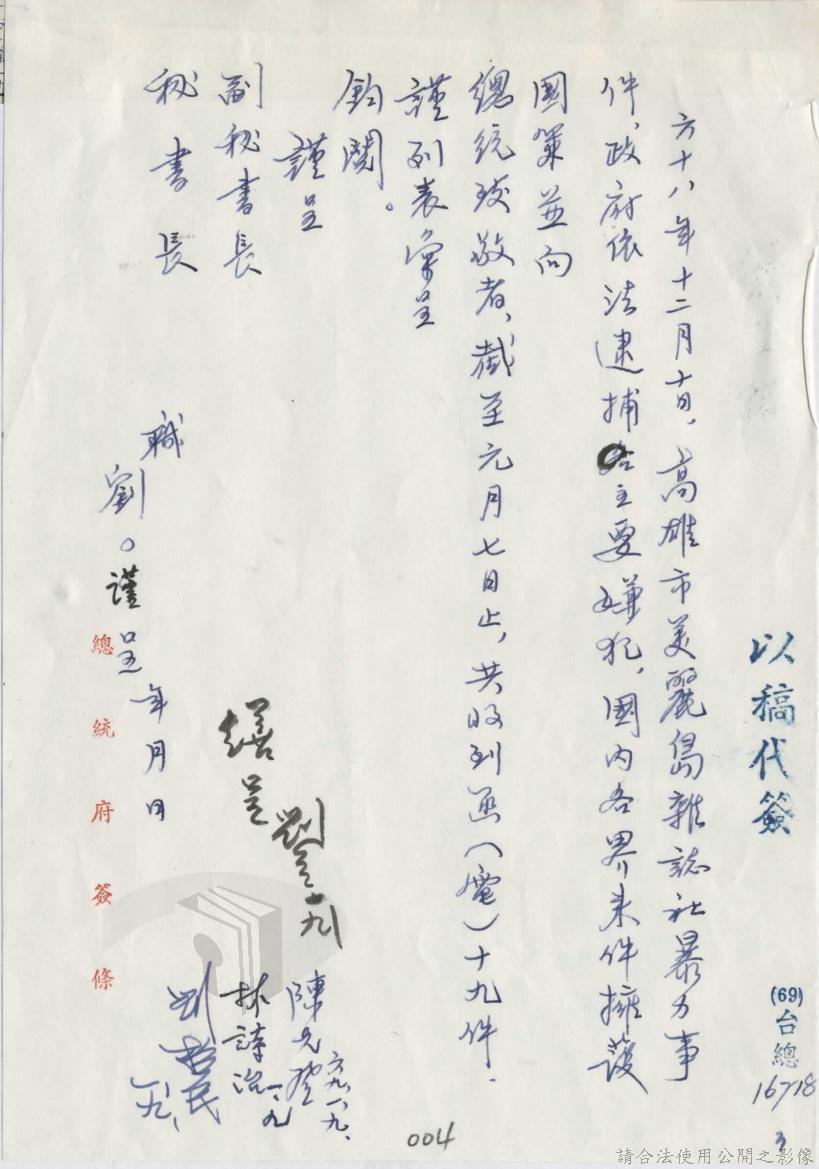 以稿代簽
(69)台總
16718
六十八年十二月十日，高雄市美麗島雜誌社暴力事
件，政府依法逮捕主要嫌犯，國內各界來件擁護
國策並向
總統致敬者，截至元月七日止，共收到函（電）十九件．
謹列表彙呈
鈞閱。
謹呈
副秘書長
秘書長
職
劉○謹呈
年月日
繕呈
一九
陳
六九、一、九、
林詩治
一、九
一、八、
總統府簽條
004
請合法使用公開之影像